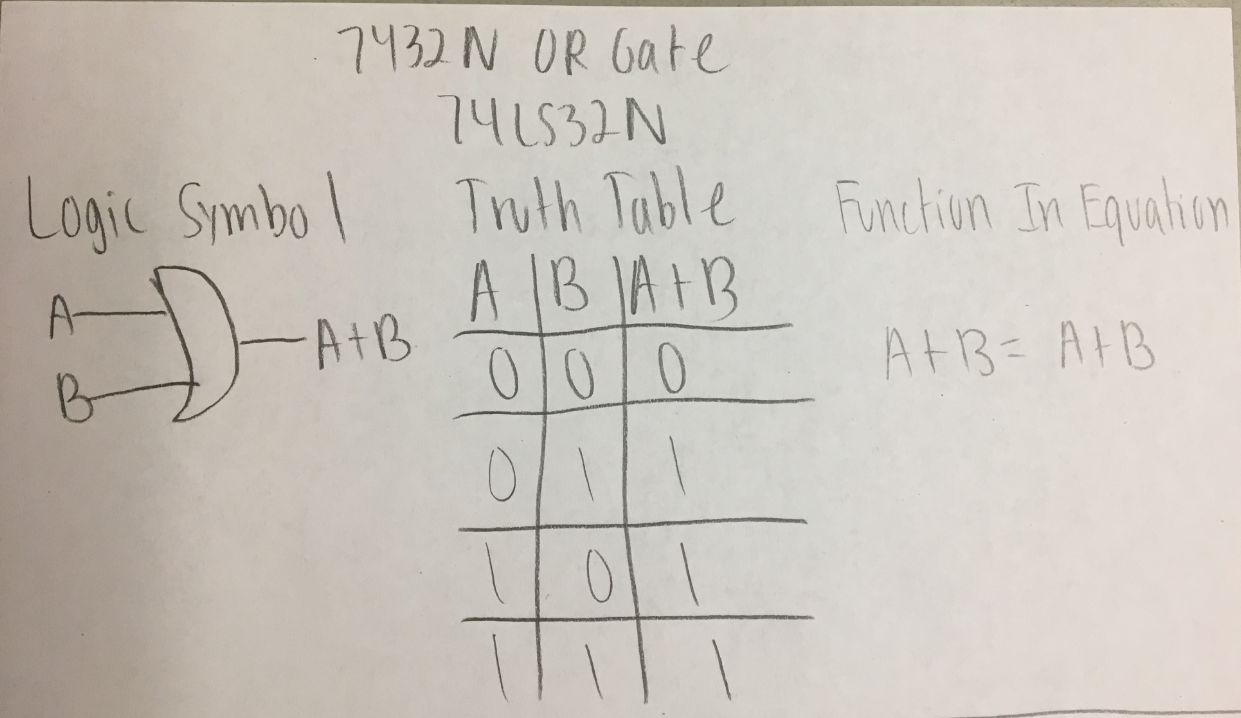 7432N OR Gate
74LS32N
Logic Symbol
A
B
A+B
Truth Table
A B A+B
0 0 0
0 1 1
1 0 1
1 1 1
Function In Equation
A+B = A+B